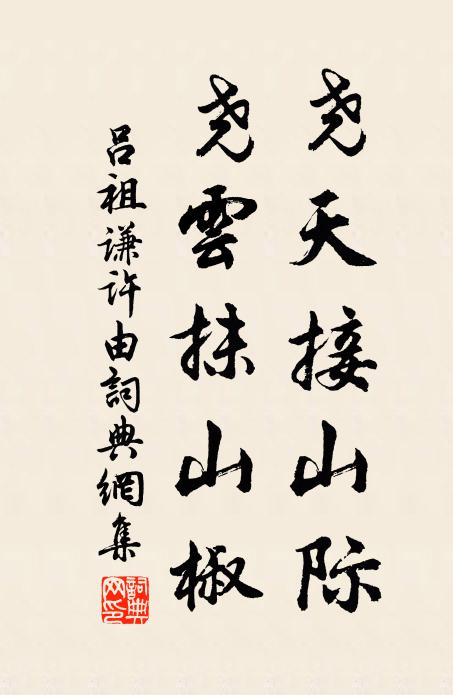 尧天接山际
尧雲抹山椒
吕祖谦许由詞典網集
詞典网印